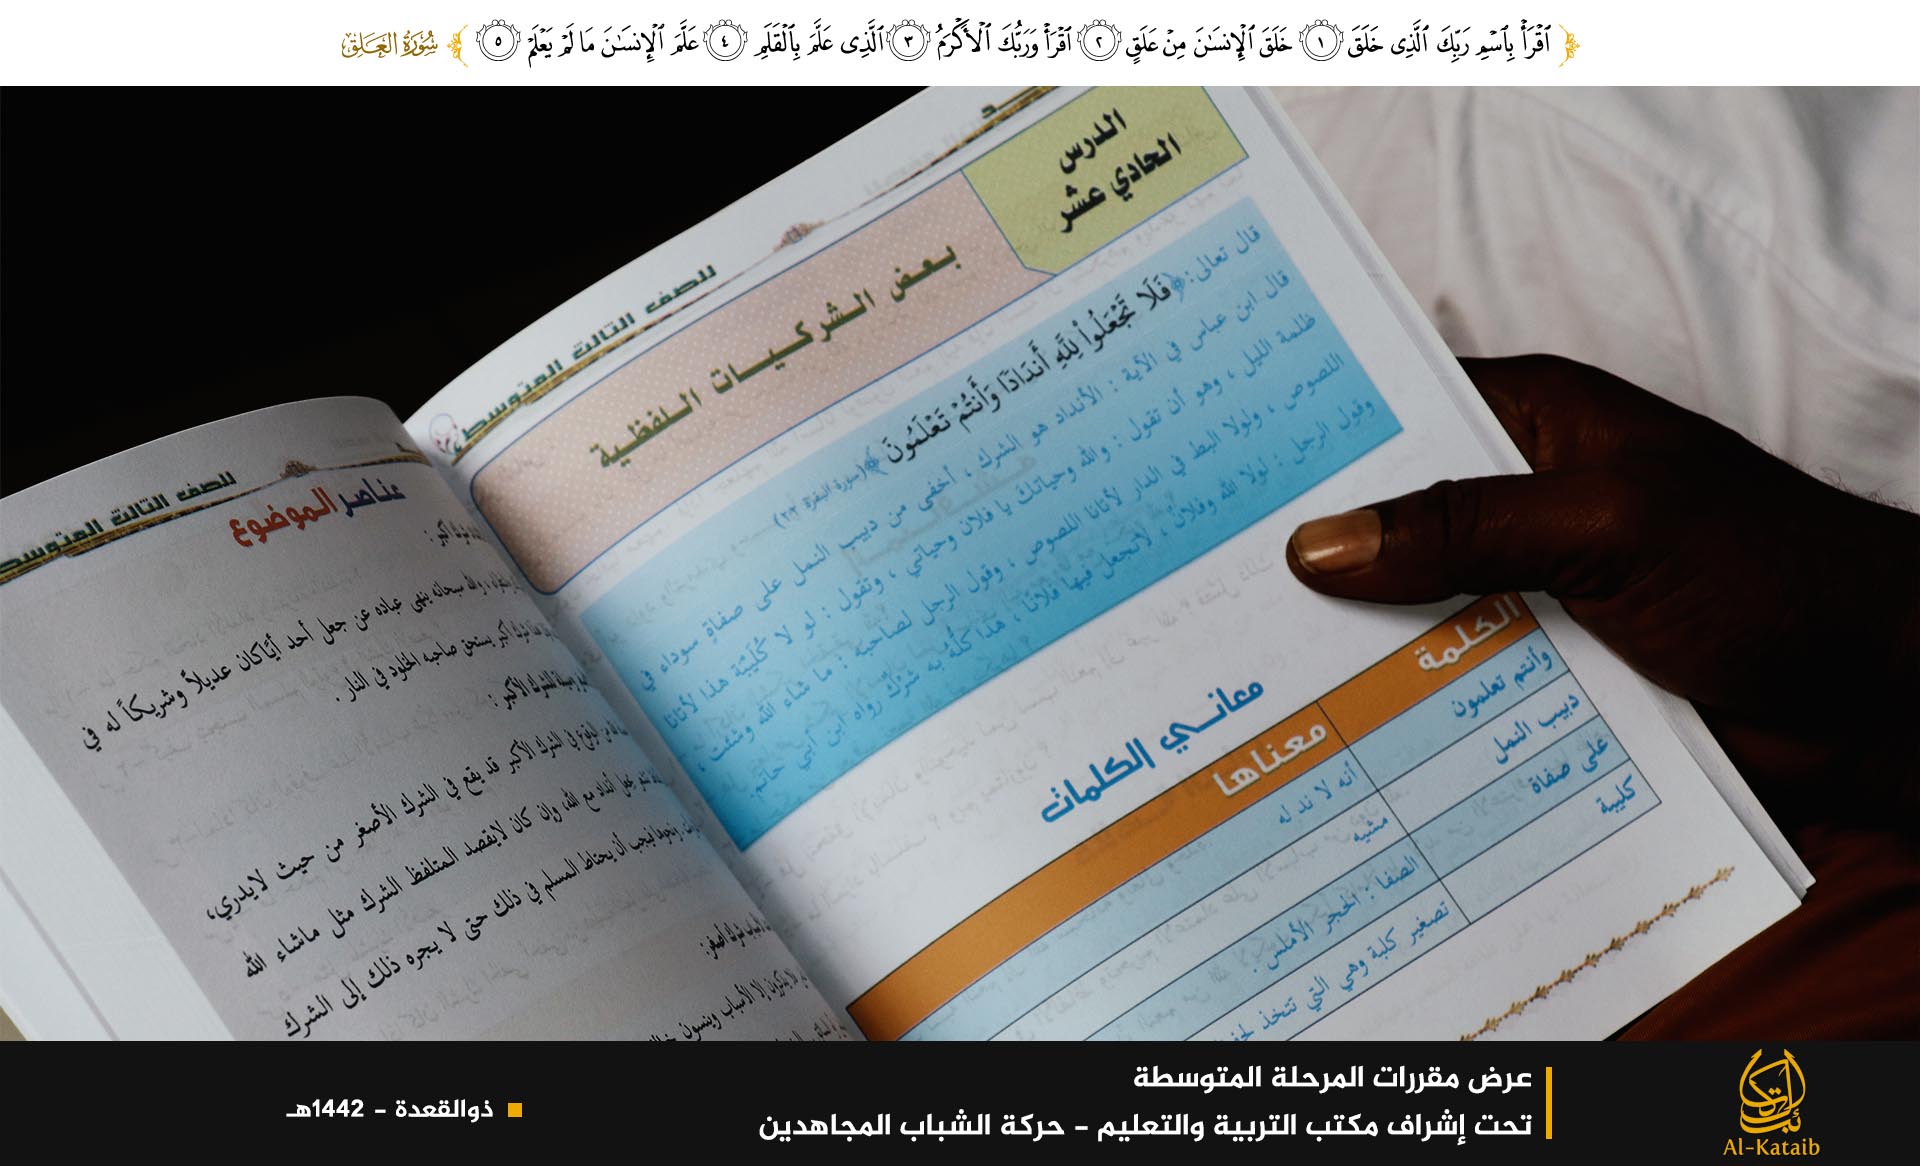 ﴿ ٱقْرَأْ بِٱسْمِ رَبِّكَ ٱلَّذِى خَلَقَ ١ خَلَقَ ٱلْإِنسَـٰنَ مِنْ عَلَقٍ ٢ ٱقْرَأْ وَرَبُّكَ ٱلْأَكْرَمُ ٣ ٱلَّذِى عَلَّمَ بِٱلْقَلَمِ ٤ عَلَّمَ ٱلْإِنسَـٰنَ مَا لَمْ يَعْلَمْ ٥ ﴾ سُورَةُ العَلَق
الدرس
الحادي عشر
للصف الثالث المتوسط
بعض الشركيات اللفظية
قال تعالى: ﴿فَلَا تَجْعَلُوا۟ لِلَّهِ أَندَادًا وَأَنتُمْ تَعْلَمُونَ﴾ (سورة البقرة ٢٢)
قال ابن عباس في الآية : الأنداد هو الشرك ، أخفى من دبيب النمل على صفاةٍ سوداء في
ظلمة الليل ، وهو أن تقول : والله وحياتك يا فلان وحياتي ، وتقول : لو لا كُلَيْبَة هذا لأتانا
اللصوص ، ولولا البط في الدار لأتانا اللصوص ، وقول الرجل لصاحبه : ما شاء الله وشئت ،
وقول الرجل : لولا الله وفلان ، لاتجعل فيها فلانًا ، هذا كلُّه به شرْك رواه ابن أبي حاتم.
معاني الكلمات
الكلمة معناها
وأنتم تعلمون أنه لا ند له
دبيب النمل مشيه
على صفاة الصفا : الحجر الأملس .
كليبة تصغير كلبة وهي التي تتخذ
للصف الثالث المتوسط
عناصر الموضوع
والله سبحانه ينهى عباده عن جعل أحد أيًّا كان عديلاً وشريكاً له في
أكبر يستحق صاحبه الخلود في النار .
في الشرك الأكبر قد يقع في الشرك الأصغر من حيث لايدري،
أنداد مع الله، وإن كان لايقصد المتلفظ الشرك مثل ماشاء الله
فيجب أن يحتاط المسلم في ذلك حتى لا يجره ذلك إلى الشرك
إلا الأسباب وينسون
عرض مقررات المرحلة المتوسطة
تحت إشراف مكتب التربية والتعليم - حركة الشباب المجاهدين
ذوالقعدة - 1442هـ
الكتائب
Al-Kataib